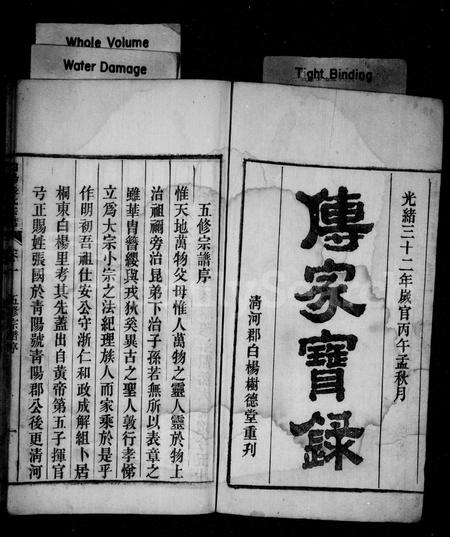 Whole Volume
Water Damage
Tight Binding
光緒三十二年歲官丙午孟秋月
傳家寶錄
清河郡白楊樹德堂重刋
五修宗譜序
惟天地萬物父母惟人萬物之靈人靈於物上
治祖禰旁治昆弟下治子孫若無所以表章之
雖華胄簪纓與戎狄奚異古之聖人敦行孝悌
立爲大宗小宗之法紀理族人而家乘於是乎
作明初吾祖仕安公守浙仁和政成解組卜居
桐東白楊里考其先蓋出自黃帝第五子揮官
弓正賜姓張國於青陽號青陽郡公後更清河
五修宗譜序